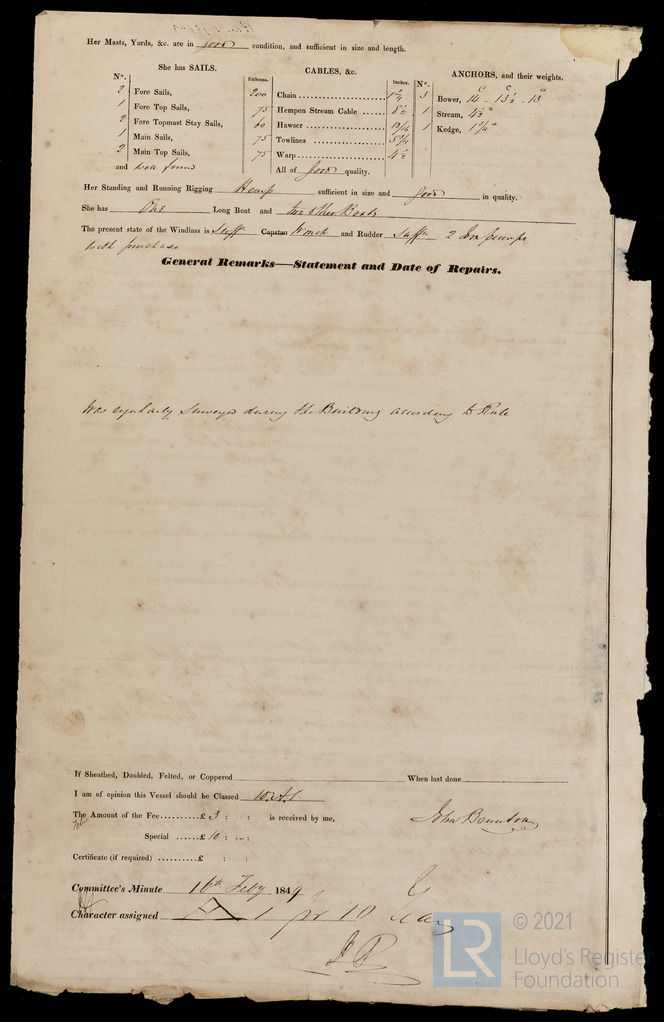 Her Masts, Yards, &c. are in good condition, and sufficient in size and length.
She has SAILS.
CABLES, &c.
ANCHORS, and their weights.
N°.
Fathoms.
Inches.
N°.
2 Fore Sails,
200 Chain 1 1/4
3 Bower, 14 - 13 1/2 - 13
1 Fore Top Sails,
75 Hempen Stream Cable 8 1/2
1 Stream, 4 1/2
2 Fore Topmast Stay Sails,
60 Hawser
1 Kedge,
1 Main Sails,
75 Towlines
2 Main Top Sails,
75 Warp 4 1/2
and well found
All of good quality.
Her Standing and Running Rigging Hemp sufficient in size and good in quality.
She has One Long Boat and two other Boats
The present state of the Windlass is Suff Capstan Winch and Rudder Suff 2 pumps
with purchase
General Remarks—Statement and Date of Repairs.
Was regularly Surveyed during the Building according to Rule
If Sheathed, Doubled, Felted, or Coppered
When last done
I am of opinion this Vessel should be Classed 10.A.1.
The Amount of the Fee £ 3 : : is received by me,
John Brunton
Special £ 10 : :
Certificate (if required) £ : :
Committee's Minute 16th Feby 1849
Character assigned A 1 for 10
LR
© 2021
Lloyd's Register
Foundation